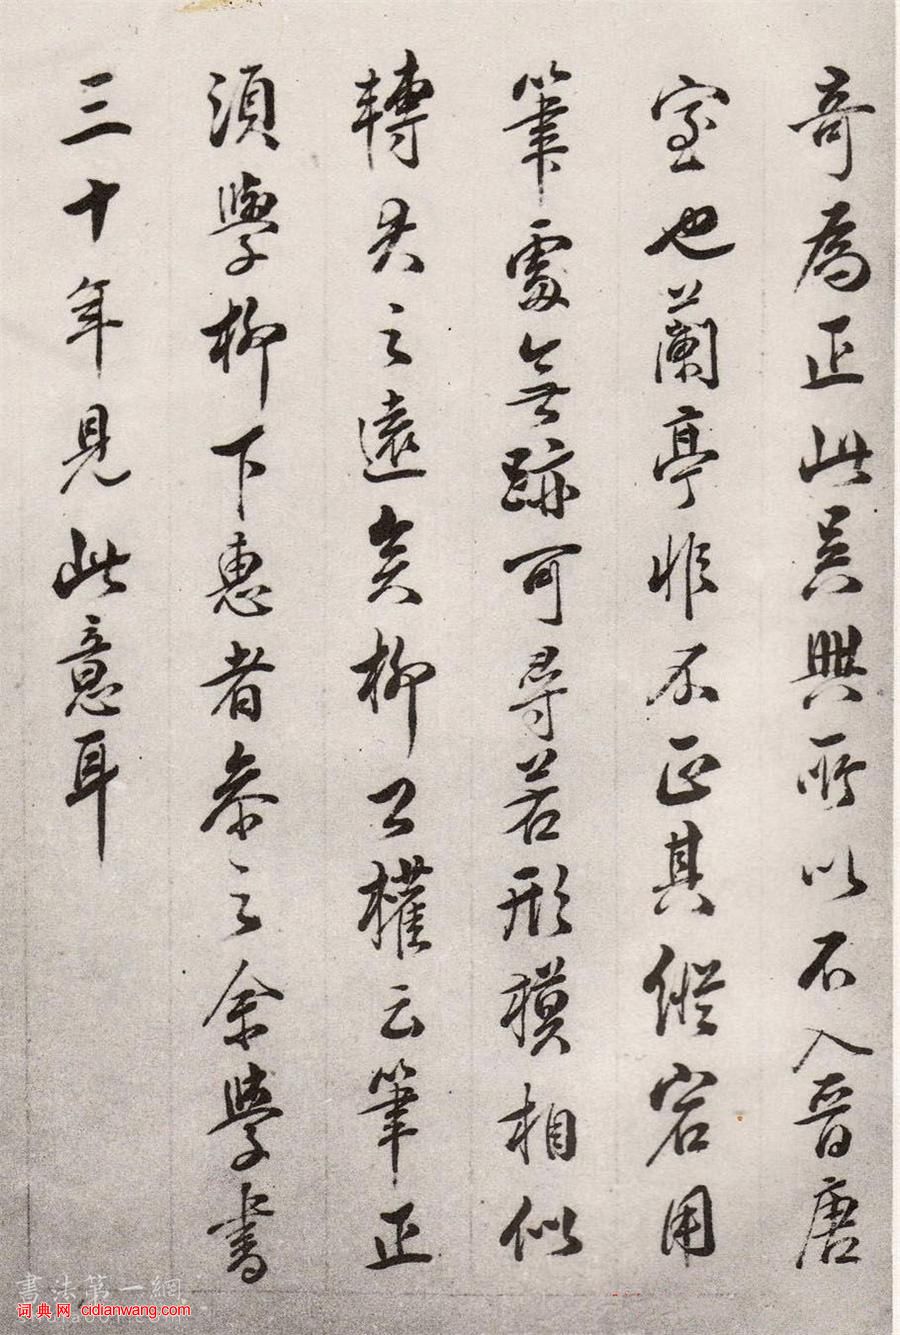 奇為正此吳興所以不入晉唐
室也蘭亭非不正其縱宕用
筆處無跡可尋若形模相似
轉去之遠矣柳公權云筆正
須學柳下惠者參之余學書
三十年見此意耳
書法第一網
词典网 cidianwang.com